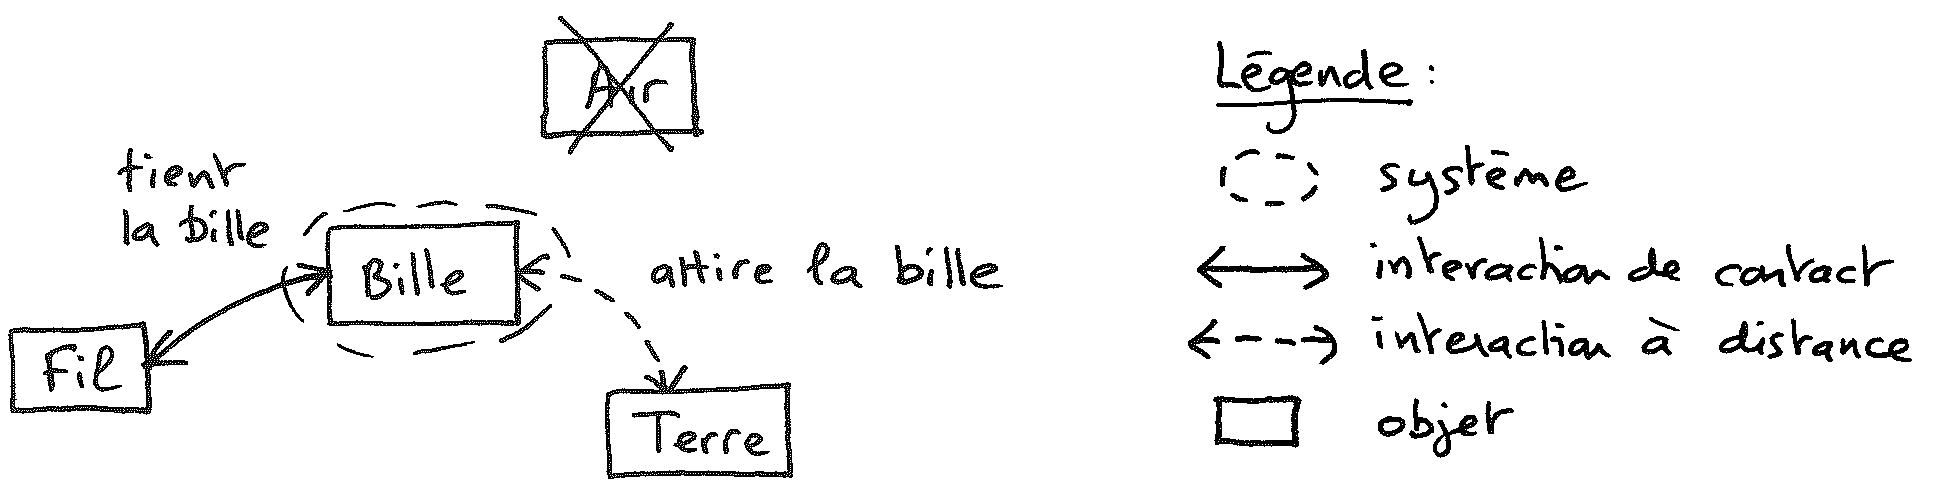 Air
tient
la bille
Bille
attire la bille
Fil
Terre
Légende :
système
interaction de contact
interaction à distance
objet